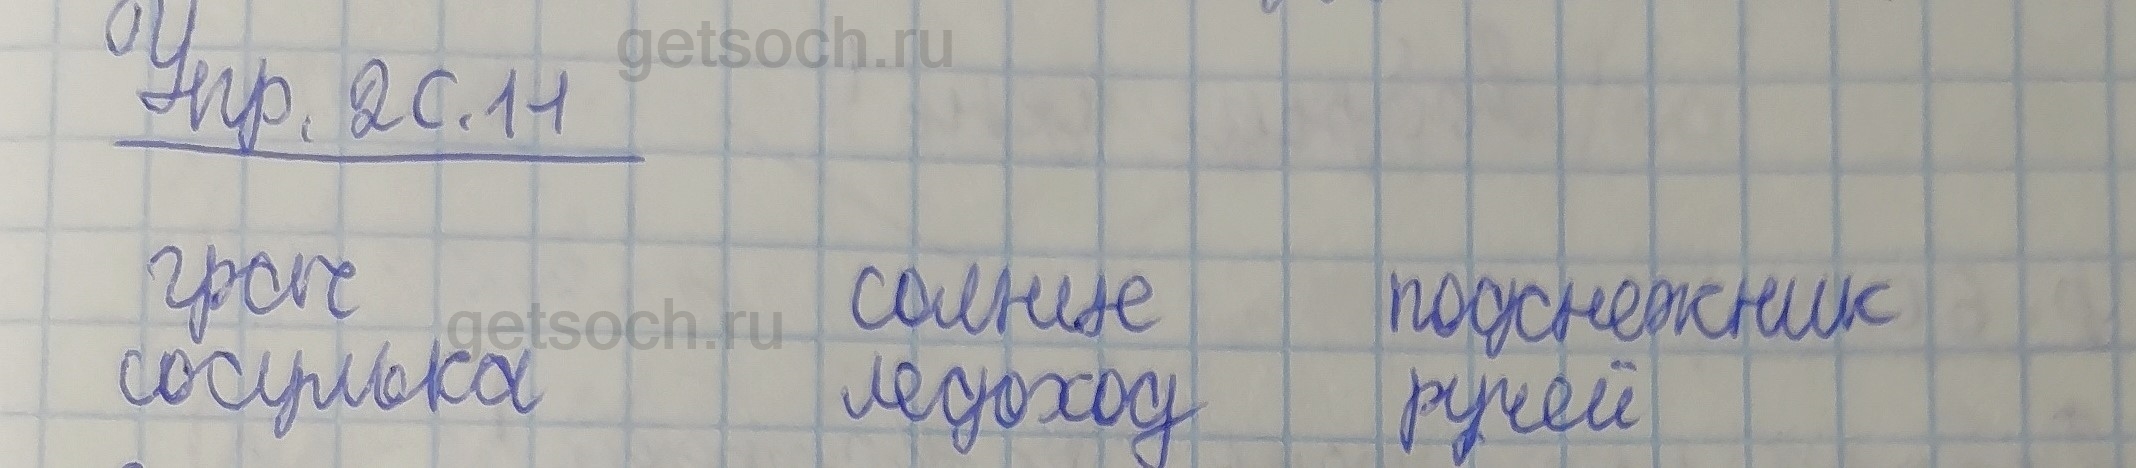 getsoch.ru
Упр. 2 с. 11
грач солнце подснежник
getsoch.ru
сосулька ледоход ручей